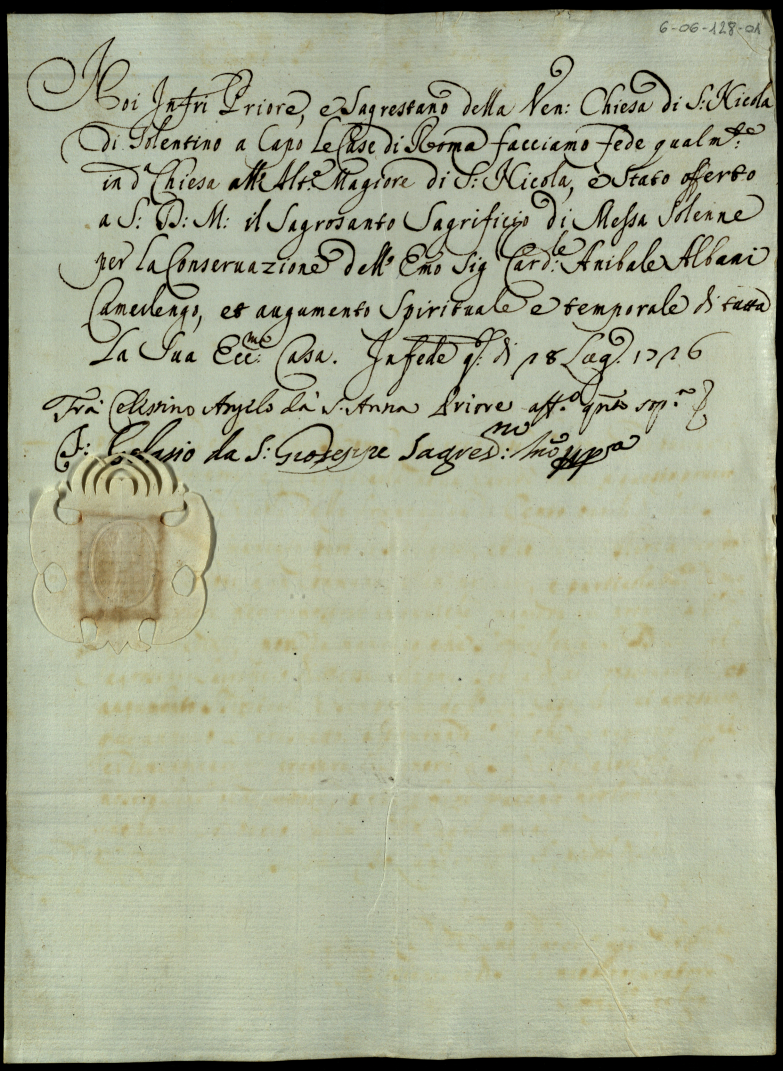 6-06-128-01
Noi Infri Priore, e Sagrestano della Ven: Chiesa di S: Nicola
di Tolentino a Capo Le Case di Roma facciamo fede qualmte:
in da Chiesa all'Alte Magiore di S: Nicola, è Stato offerto
a S: D: M: il Sagrosanto Sagrificio di Messa Solenne
per la Conservazione dell'Emo Sig Cardle: Anibale Albani
Camerlengo, et augumento Spirituale e temporale di tutta
La Sua Eccma: Casa. In fede q. di 18 Lug. 1716
Fra Celestino Angelo da S. Anna Priore affo qnto sop.a
F: Gelasio da S: Giuseppe Sagresno: mo ppa